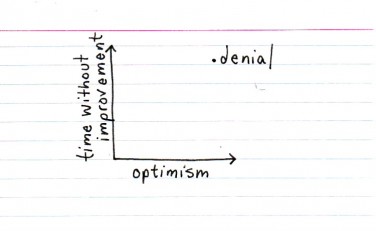 time without
improvement
.denial
optimism